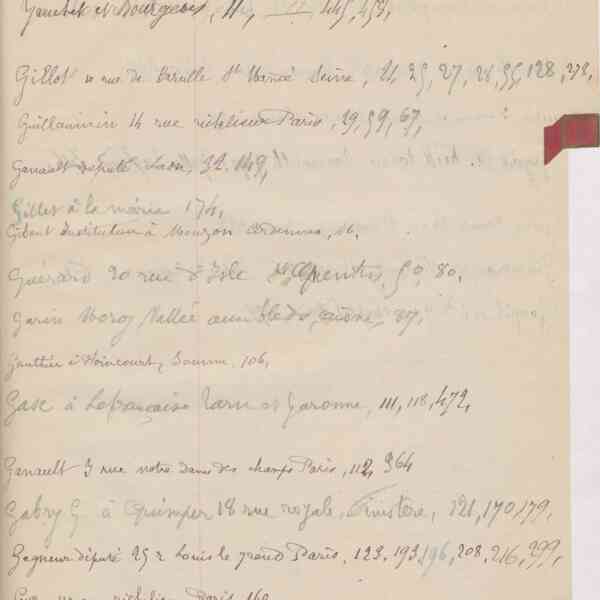 et Bourgeois, 11, 445, 453,
Gillot 10 rue de St Seine, 21, 25, 27, 28, 55, 128, 278,
Guillaumin 14 rue richelieu Paris, 19, 59, 67,
Ganault député Laon, 32. 149,
Gilles à la mairie 174,
Gibout instituteur à Mouzon Ardennes, 46,
Guérard 20 rue d'Isle St Quentin, 50, 80,
Garin Moroy Vallée aisne, 87,
Gauthier à Noincourt, Somme, 106,
Gase à Lafrançaise Tarn et Garonne, 111, 118, 472,
Ganault 3 rue notre dame des champs Paris, 112, 364
Gabry G. à Quimper 18 rue royale, Finistère, 121, 170, 179,
Gagneur député 25 r Louis le grand Paris, 123, 193, 196, 208, 216, 299,
richelieu Paris 160